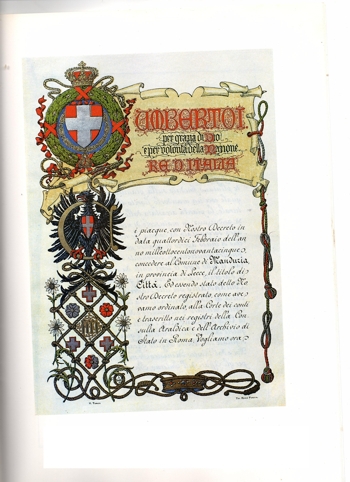 UMBERTO I
per grazia di Dio
e per volontà della Nazione
RE D'ITALIA
i piacque, con Nostro Decreto in
data quattordici Febbraio dell'an
no milleottocentonovantacinque,
concedere al Comune di Manduria,
in provincia di Lecce, il titolo di
Città. Ed essendo stato dello No
stro Decreto registrato, come ave
vamo ordinato, alla Corte dei conti
e trascritto nei registri della Con
sulta Araldica e dell'Archivio di
Stato in Roma, Vogliamo ora